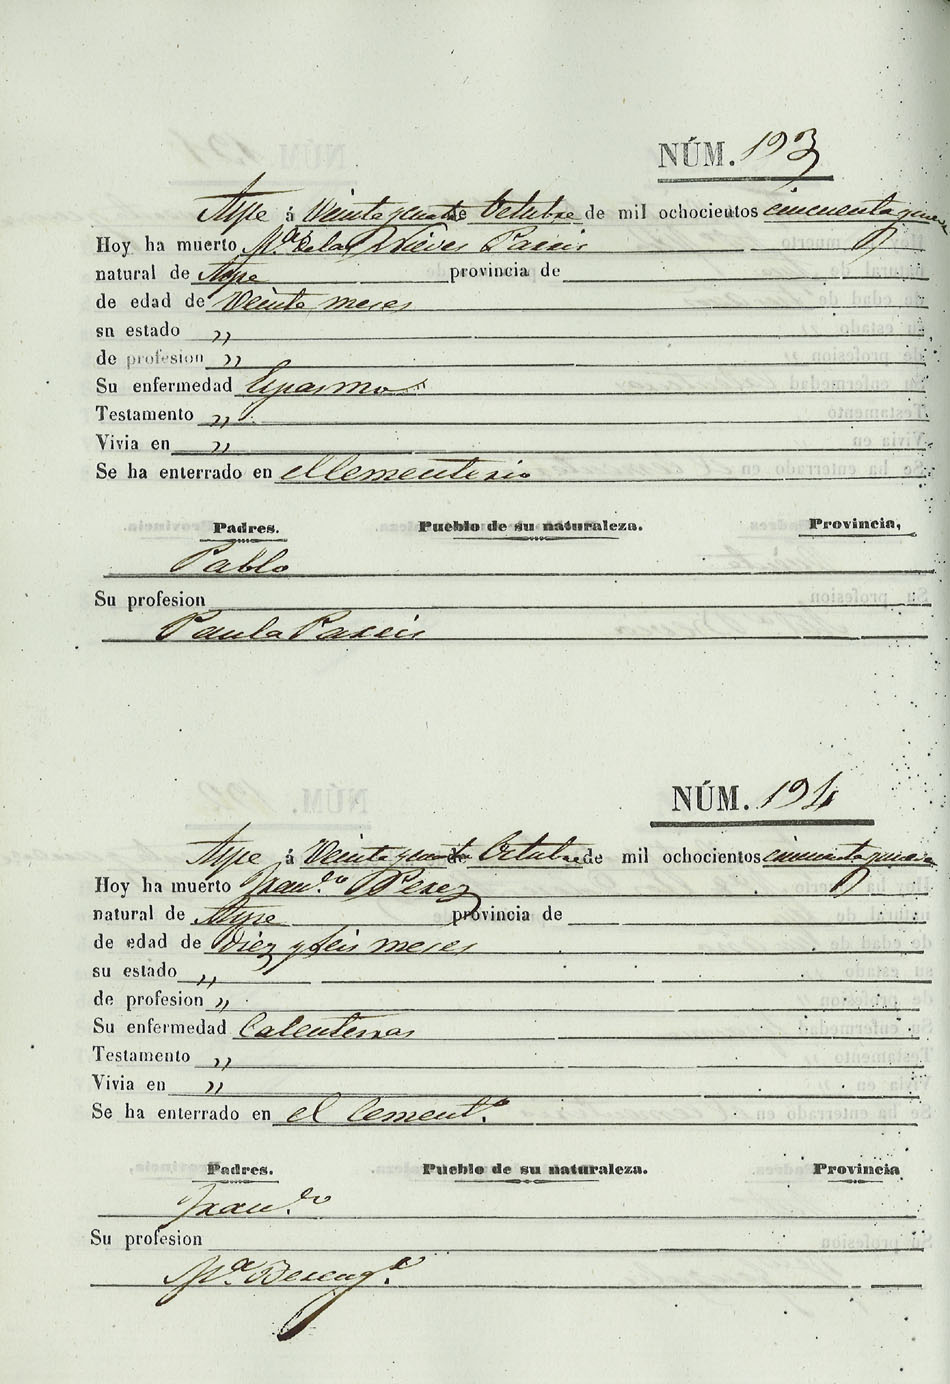 NÚM. 193
Aspe á Veinte y cuatro de Octubre de mil ochocientos cincuenta y
Hoy ha muerto Mª de las Nieves
natural de Aspe provincia de
de edad de Veinte meses
sn estado "
de profesion "
Su enfermedad Espasmos
Testamento "
Vivia en "
Se ha enterrado en el Cementerio
Padres. Pueblo de su naturaleza. Provincia,
Pablo
Su profesion
Paula
NÚM. 194
Aspe á Veinte y cuatro de Octubre de mil ochocientos cincuenta y
Hoy ha muerto Franco Perez
natural de Aspe provincia de
de edad de Diez y seis meses
su estado "
de profesion "
Su enfermedad Calenturas
Testamento "
Vivia en "
Se ha enterrado en el Cemento
Padres. Pueblo de su naturaleza. Provincia
Franco
Su profesion
Mª